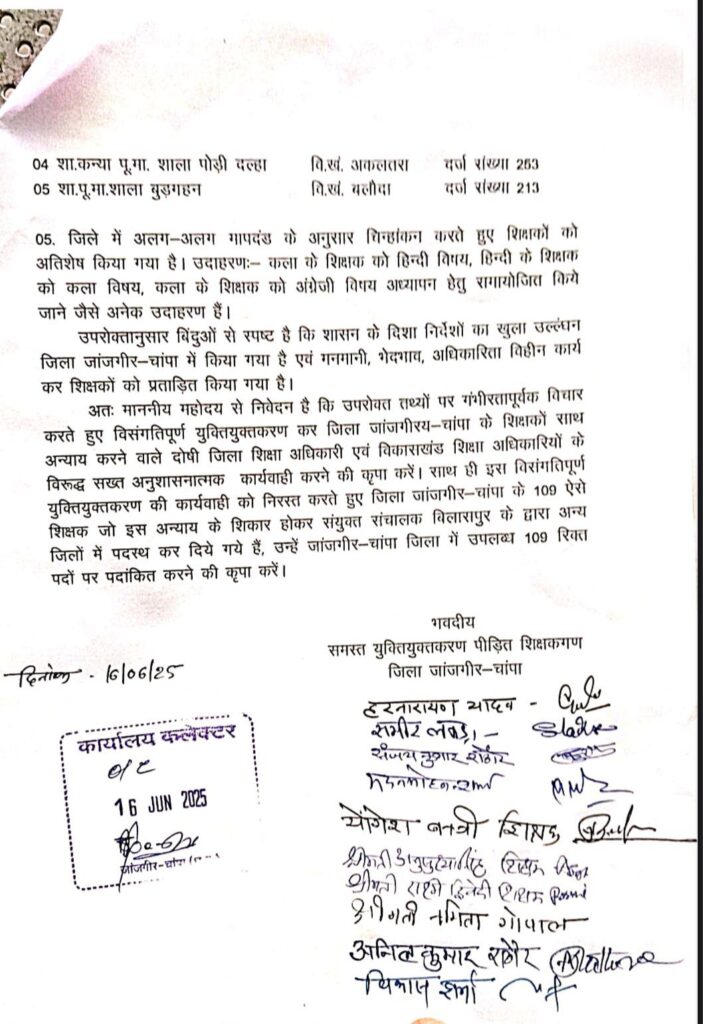 04 शा.कन्या पू.मा. शाला पोड़ी दल्हा वि.खं. अकलतरा दर्ज संख्या 253
05 शा.पू.मा.शाला बुड़गहन वि.खं. बलौदा दर्ज संख्या 213
05. जिले में अलग–अलग मापदंड के अनुसार चिन्हांकन करते हुए शिक्षकों को
अतिशेष किया गया है। उदाहरणः– कला के शिक्षक को हिन्दी विषय, हिन्दी के शिक्षक
को कला विषय, कला के शिक्षक को अंग्रेजी विषय अध्यापन हेतु समायोजित किये
जाने जैसे अनेक उदाहरण हैं।
उपरोक्तानुसार बिंदुओं से स्पष्ट है कि शासन के दिशा निर्देशों का खुला उल्लंघन
जिला जांजगीर–चांपा में किया गया है एवं मनमानी, भेदभाव, अधिकारिता विहीन कार्य
कर शिक्षकों को प्रताड़ित किया गया है।
अतः माननीय महोदय से निवेदन है कि उपरोक्त तथ्यों पर गंभीरतापूर्वक विचार
करते हुए विसंगतिपूर्ण युक्तियुक्तकरण कर जिला जांजगीरय–चांपा के शिक्षकों साथ
अन्याय करने वाले दोषी जिला शिक्षा अधिकारी एवं विकासखंड शिक्षा अधिकारियों के
विरूद्ध सख्त अनुशासनात्मक कार्यवाही करने की कृपा करें। साथ ही इस विसंगतिपूर्ण
युक्तियुक्तकरण की कार्यवाही को निरस्त करते हुए जिला जांजगीर–चांपा के 109 ऐसे
शिक्षक जो इस अन्याय के शिकार होकर संयुक्त संचालक बिलासपुर के द्वारा अन्य
जिलों में पदस्थ कर दिये गये हैं, उन्हें जांजगीर–चांपा जिला में उपलब्ध 109 रिक्त
पदों पर पदांकित करने की कृपा करें।
भवदीय
समस्त युक्तियुक्तकरण पीड़ित शिक्षकगण
जिला जांजगीर–चांपा
दिनांक - 16/06/25
कार्यालय कलेक्टर
16 JUN 2025
जांजगीर-चांपा
हरनारायण यादव -
समीर
संजय कुमार राठौर
मदनमोहन शर्मा
योगेश शिक्षक
श्रीमती शिक्षक
श्रीमती द्विवेदी शिक्षक
श्रीमती नमिता गोपाल
अनिल कुमार राठौर
विकास शर्मा